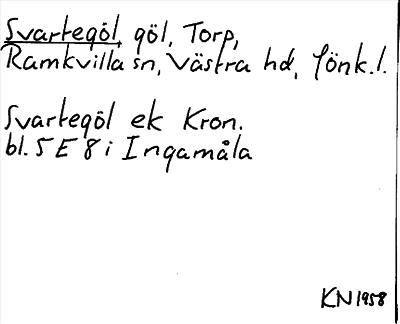 Svartegöl, göl, Torp,
Ramkvilla sn, Västra hd, Jönk.l.
Svartegöl ek Kron.
bl. 5 E 8 i Ingamåla
KN 1958